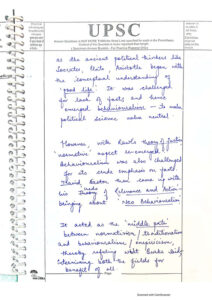 UPSC
as the ancient political thinkers like
Socrates, Plato Aristotle began with
the conceptual understanding of
'good life'. It was challenged
for lack of facts and hence
emerged behaviouralism - to make
political science value neutral.
However, with Rawls theory of Justice
'normative' aspect re-emerged.
Behaviouralism was also challenged
for its crude emphasis on facts.
David Easton then came up with
his theory of relevance and Action
bringing about 'Neo Behaviouralism
It acted as the 'middle path'
between normativism / traditionalism
and behaviouralism / empiricism,
thereby refuting what Burke said,
intermixing both the fields for
benefit of all.
Scanned with CamScanner